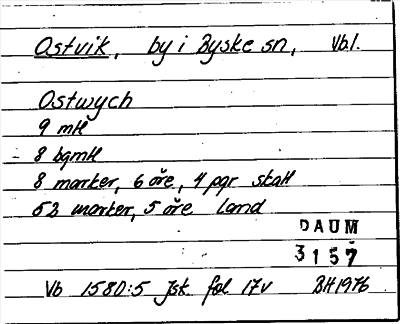 Ostvik, by i Byske sn, Vb.l.
Ostwych
9 mtl
8 bgmtl
8 marker, 6 öre, 4 pgr skatt
52 marker, 5 öre land
DAUM
3157
Vb 1580:5 Jsk. fol 17v BH 1976